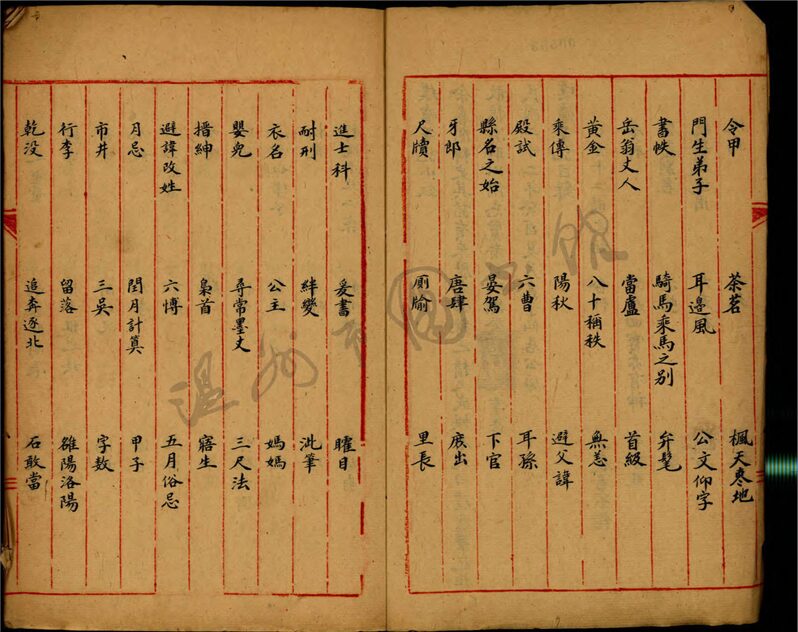 令甲 茶茗 楓天棗地
門生弟子 耳邊風 公文仰字
書帙 騎馬乘馬之别 弁髦
岳翁丈人 當盧 首級
黄金 八十稱秩 無恙
乘傳 陽秋 避父諱
殿試 六曹 耳孫
縣名之始 晏駕 下官
牙郎 唐肆 底出
尺牘 厠腧 里長
進士科 爰書 矐目
耐刑 姅變 泚筆
衣名 公主 媽媽
嬰兒 尋常墨丈 三尺法
搢紳 梟首 寤生
避諱改姓 六愽 五月俗忌
月忌 閏月計算 甲子
市井 三吳 字数
行李 留落 雒陽洛陽
乾没 追奔逐北 石敢當
温州市图书馆